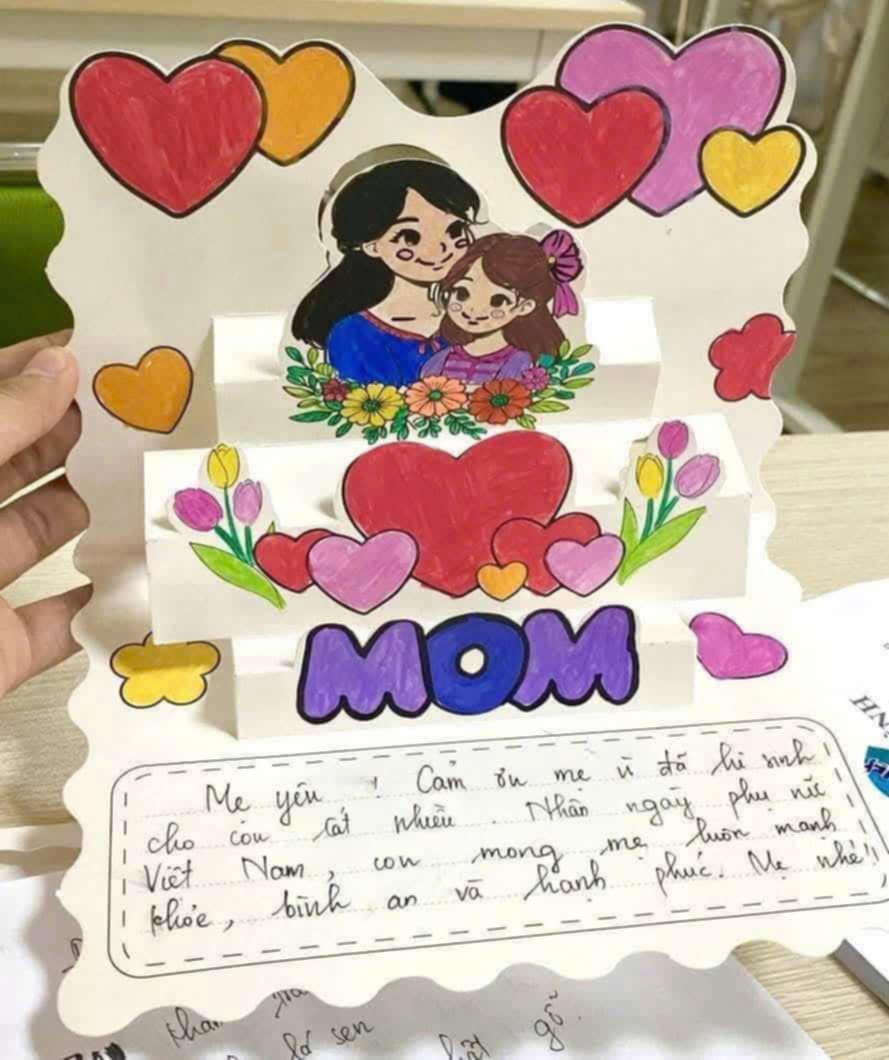 MOM
Mẹ yêu ! Cảm ơn mẹ vì đã hi sinh
cho con rất nhiều. Nhân ngày phụ nữ
Việt Nam, con mong mẹ luôn mạnh
khỏe, bình an và hạnh phúc. Mẹ nhé!
sen
gỗ